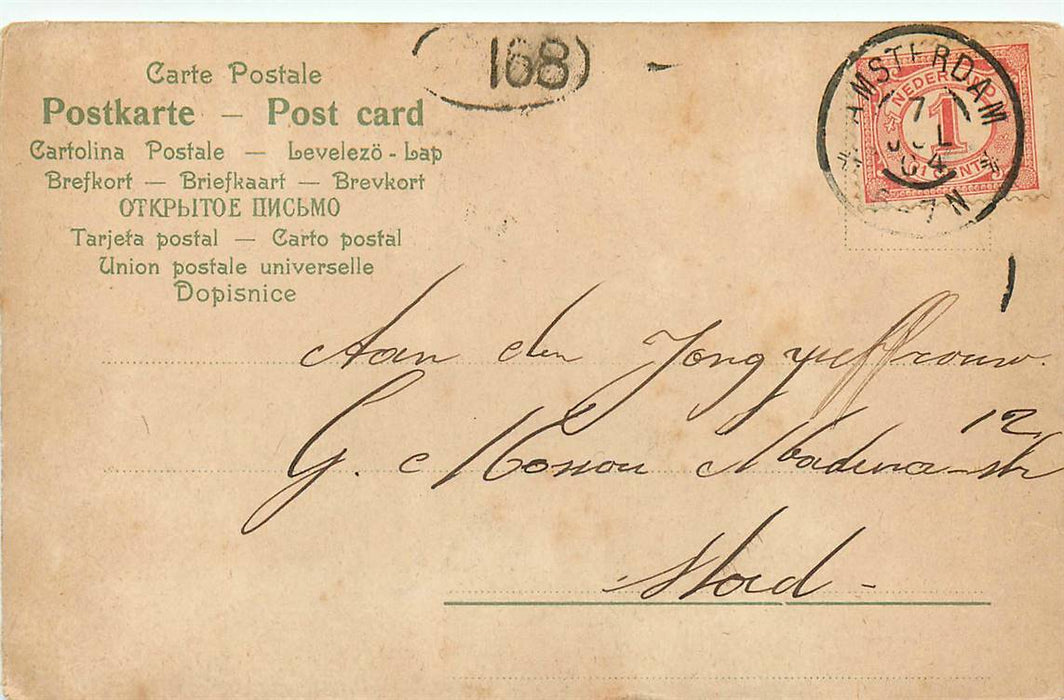 Carte Postale
Postkarte — Post card
Cartolina Postale — Levelezö-Lap
Brefkort — Briefkaart — Brevkort
ОТКРЫТОЕ ПИСЬМО
Tarjeta postal — Carto postal
Union postale universelle
Dopisnice
168
AMSTERDAM
7 JUL 04
7 N
NEDERLAND
1
CENT
Aan den Jongejuffrouw
G. Mossou
12
Stad